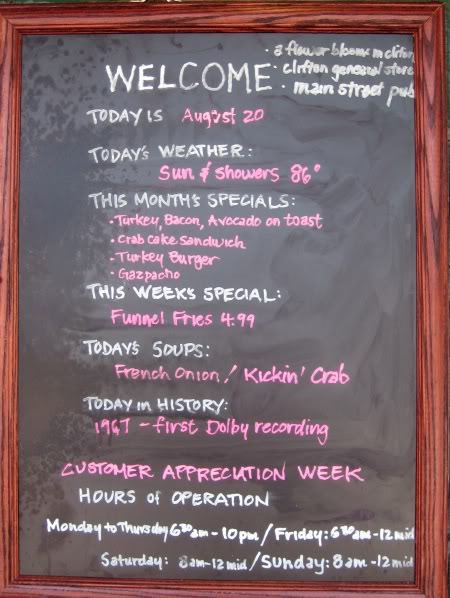 • a flower blooms in clifton
• clifton general store
WELCOME • main street pub
TODAY IS August 20
TODAY'S WEATHER:
Sun & showers 86°
THIS MONTH'S SPECIALS:
• Turkey, Bacon, Avocado on toast
• Crab Cake Sandwich
• Turkey Burger
• Gazpacho
THIS WEEK'S SPECIAL:
Funnel Fries 4.99
TODAY'S SOUPS:
French Onion / Kickin' Crab
TODAY in HISTORY:
1967 - first Dolby recording
CUSTOMER APPRECIATION WEEK
HOURS of OPERATION
Monday to Thursday 6:30am - 10pm / Friday: 6:30am - 12mid
Saturday: 8am - 12mid / Sunday: 8am - 12mid